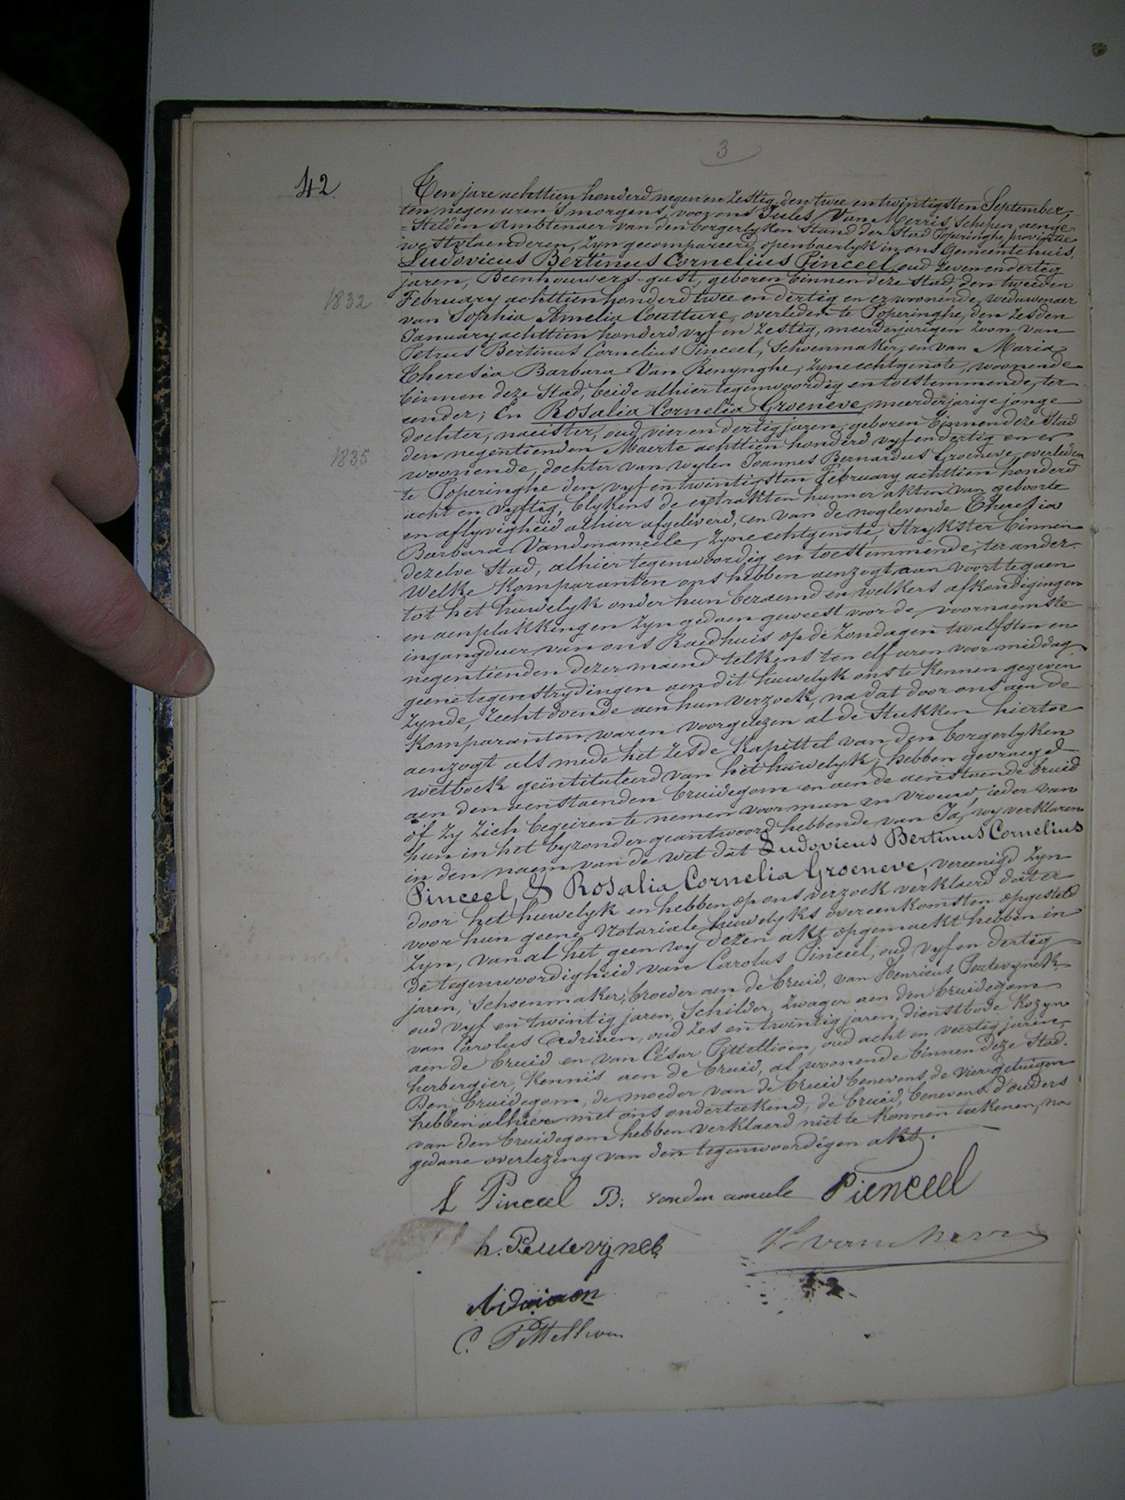 3
42
Ten jare achttien honderd negen en zestig, den twee en twintigsten September,
ten negen uren 's morgens, voor ons Jules Van Merris, schepen, aenge
=stelden Ambtenaer van den borgerlyken stand der Stad Poperinghe, provintie
westvlaenderen, zyn gecompareerd, openbaerlyk in ons Gemeentehuis,
Ludovicus Bertinus Cornelius Pinceel, oud zeven en dertig
jaren, Beenhouwers-gast, geboren binnen deze Stad, den tweeden
1832
February achttien honderd twee en dertig en er wonende, weduwenaer
van Sophia Amelia Coutture, overleden te Poperinghe, den zesden
January achttien honderd vyf en zestig, meerderjarigen zoon van
Petrus Bertinus Cornelius Pinceel, Schoenmaker, en van Maria
Theresia Barbara Van Renynghe, zyne echtgenote, woonende
binnen deze Stad, beide alhier tegenwoordig en toestemmende, ter
eender; En Rosalia Cornelia Groeneve, meerderjarige jonge
dochter, naeister, oud vier en dertig jaren, geboren binnen deze Stad
1835
den negentienden Maerte achttien honderd vyf en dertig en er
woonende, dochter van wylen Joannes Bernardus Groeneve, overleden
te Poperinghe den vyf en twintigsten February achttien honderd
acht en vyftig, blykens de extrakten hunner akten van geboorte
en aflyvigheid alhier afgeleverd, en van de nog levende Theresia
Barbara Vandenameele, zyne echtgenote, Strykster binnen
dezelve Stad, alhier tegenwoordig en toestemmende, ter ander.
Welke Komparanten ons hebben aenzogt, aen voort te gaen
tot het huwelyk onder hun beraemd en welkers afkondigingen
en aenplakkingen zyn gedaen geweest voor de voornaemste
ingangdeur van ons Raedhuis op de Zondagen twalfsten en
negentienden dezer maend telkens ten elf uren voormiddag
geene tegenstrydingen aen dit huwelyk ons te kennen gegeven
zynde, recht doende aen hun verzoek, na dat door ons aen de
Komparanten waren voorgelezen al de Stukken hiertoe
aenzogt als mede het zesde Kapittel van den borgerlyken
wetboek geïntituleerd van het huwelyk, hebben gevraegd
aen den aenstaenden bruidegom en aen de aenstaende bruid
of zy zich begeiren te nemen voor man en vrouw ieder van
hun in het byzonder geantwoord hebbende van Ja, wy verklaren
in den naem van de wet dat Ludovicus Bertinus Cornelius
Pinceel, & Rosalia Cornelia Groeneve, vereenigd zyn
door het huwelyk en hebben op ons verzoek verklaerd dat er
voor hun geene Notariale huwelyks overeenkomsten opgesteld
zyn, van al het geen wy dezen akt opgemaekt hebben in
de tegenwoordigheid van Carolus Pinceel, oud vyf en dertig
jaren, Schoenmaker, broeder aen de bruid, van Henricus Peutevynck,
oud vyf en twintig jaren, Schilder, zwager aen den bruidegom
van Carolus Adriaen, oud zes en twintig jaren, dienstbode Kozyn
aen de bruid en van César Pettellioen, oud acht en veertig jaren,
herbergier, Kennis aen de bruid, al woonende binnen deze Stad.
Den bruidegom, de moeder van de bruid benevens de vier getuigen
hebben alhier met ons onderteekend, de bruid, benevens d'ouders
van den bruidegom hebben verklaerd niet te konnen teekenen, na
gedane overlezing van den tegenwoordigen akt.
L Pinceel B: vanden ameele Pienceel
h. Peutevynck
Adriaen
C. Pettellioen